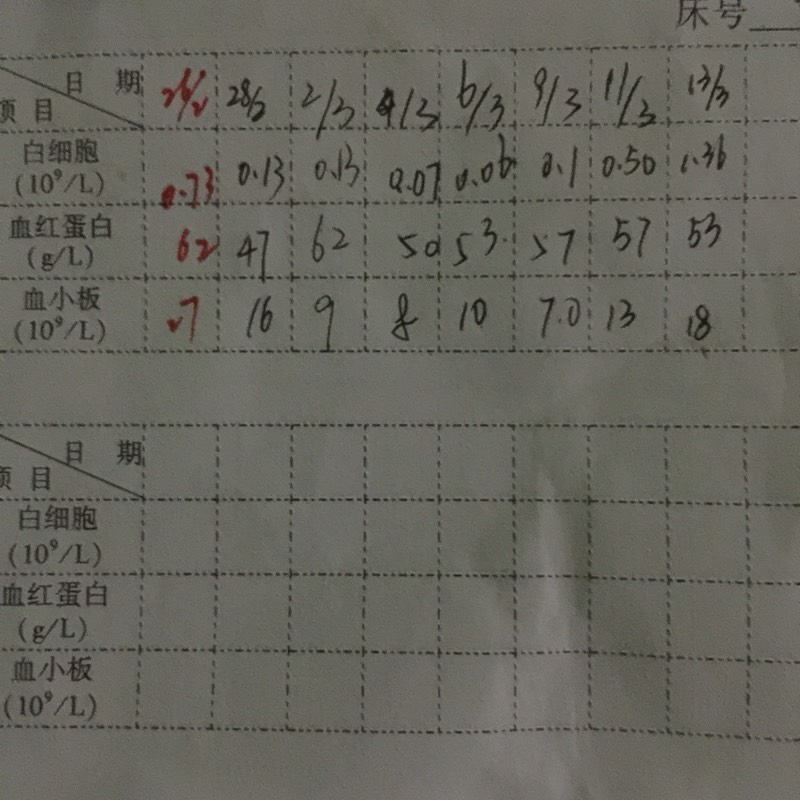 床号
日 期 28/2 2/3 4/3 6/3 9/3 11/3 13/3
项 目
白细胞
(10⁹/L) 0.73 0.13 0.13 0.07 0.06 0.1 0.50 1.36
血红蛋白
(g/L) 62 47 62 50 53 57 57 53
血小板
(10⁹/L) 16 9 8 10 7.0 13 18
日 期
项 目
白细胞
(10⁹/L)
血红蛋白
(g/L)
血小板
(10⁹/L)